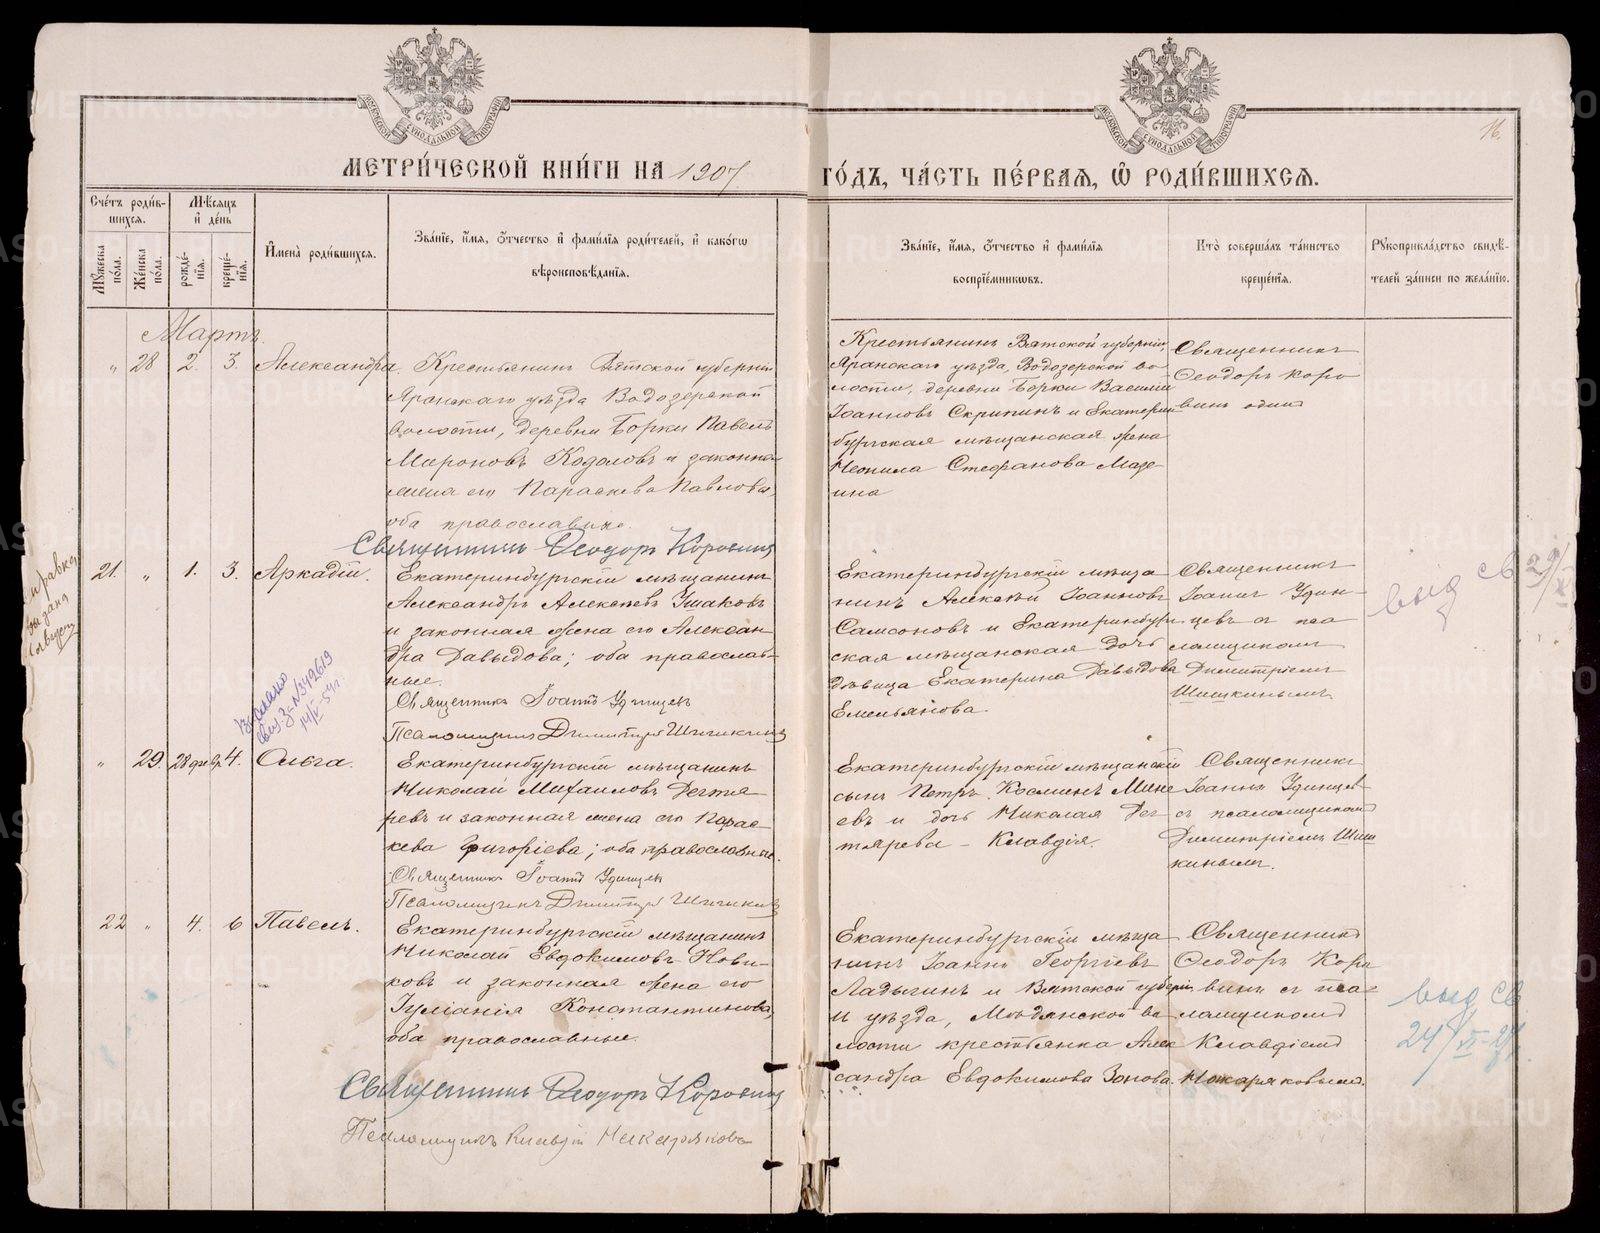 МЕТРИ́ЧЕСКОЙ КНИ́ГИ НА 1907 ГО́ДЪ, ЧА́СТЬ ПЕ́РВАЯ, Ѡ РОДИ́ВШИХСЯ.
16.
Сче́тъ роди́в-
шихся.
Мѣ́сяцъ
и́ де́нь
Мꙋ́жеска по́ла.
Же́нска по́ла.
рожде́-
нїя.
креще́-
нїя.
И҆мена̀ роди́вшихся.
Зва́нїе, и҆́мя, ѻ҆́тчество и҆ фами́лїя роди́телей, и҆ како́гѡ
вѣроисповѣ́данїя.
Зва́нїе, и҆́мя, ѻ҆́тчество и҆ фами́лїя
воспрїе́мникѡвъ.
Кто̀ соверша́лъ та́инство
креще́нїя.
Рꙋкоприкла́дство свидѣ́-
телей за́писи по жела́нїю.
Мартъ.
„ 28 2. 3. Александра.
Крестьянинъ Вятской губерніи
Яранскаго уѣзда Водозерской
волости, деревни Борки Павелъ
Мироновъ Козловъ и законная
жена его Параскева Павлова,
оба православные.
Священникъ Ѳеодоръ Коровинъ
Крестьянинъ Вятской губерніи,
Яранскаго уѣзда, Водозерской во-
лости, деревни Борки Василій
Іоанновъ Скрипинъ и Екатерин
бургская мѣщанская жена
Неонила Стефанова Мазе-
ина
Священникъ
Ѳеодоръ Коро
винъ один
21. „ 1. 3. Аркадій.
Екатеринбургскій мѣщанинъ
Александръ Алексѣевъ Ушаковъ
и законная жена его Алексан
дра Давыдова; оба православ-
ные.
Священникъ Іоаннъ Удинцевъ
Псаломщикъ Димитрій Шишкинъ
Екатеринбургскій мѣща
нинъ Алексѣй Іоанновъ
Самсоновъ и Екатеринбург
ская мѣщанская дочь
дѣвица Екатерина Давыдова
Емельянова.
Священникъ
Іоаннъ Удин-
цевъ съ пса
ломщикомъ
Димитріемъ
Шишкинымъ
выд св 29/
справка
выдана
№349619
„ 29. 28 февр. 4. Ольга.
Екатеринбургскій мѣщанинъ
Николай Михаиловъ Дегтя-
ревъ и законная жена его Парас-
кева Григоріева; оба православные.
Священникъ Іоаннъ Удинцевъ
Псаломщикъ Димитрій Шишкинъ
Екатеринбургскій мѣщанскій
сынъ Петръ Косминъ Мине
евъ и дочь Николая Дег-
тярева - Клавдія.
Священникъ
Іоаннъ Удинцев-
съ псаломщикомъ
Димитріемъ Шиш
кинымъ.
22 „ 4. 6 Павелъ.
Екатеринбургскій мѣщанинъ
Николай Евдокимовъ Нови-
ковъ и законная жена его
Іуліанія Константинова,
оба православные.
Священникъ Ѳеодоръ Коровинъ
Псаломщикъ Клавдій Макаряковъ
Екатеринбургскій мѣща
нинъ Іоаннъ Георгіевъ
Ладыгинъ и Вятской губерніи
и уѣзда, Мѣдянской во
лости крестьянка Алек
сандра Евдокимова Зонова.
Священникъ
Ѳеодоръ Коро
винъ съ пса-
ломщикомъ
Клавдіемъ
Макаряковымъ.
выд св
24/VI-27